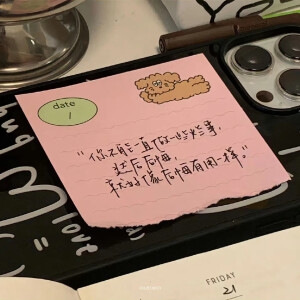 date
/
"你不能一直做一些烂事,
然后后悔,
就好像后悔有用一样。"
FRIDAY
21
love